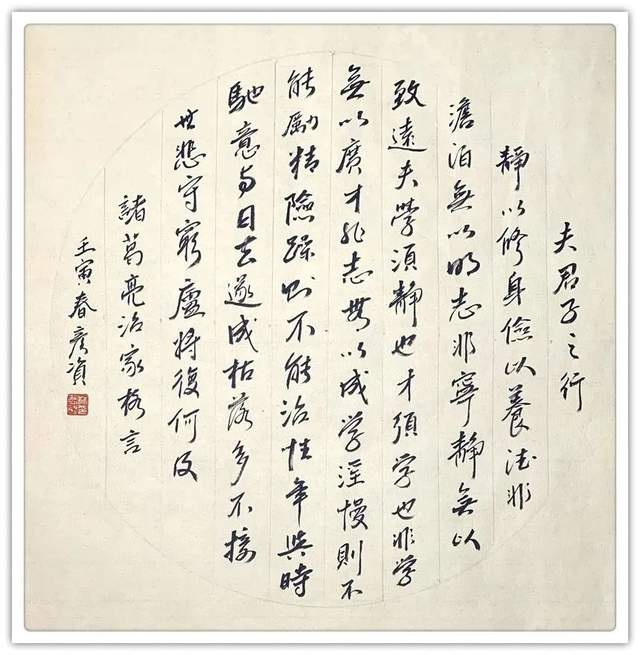 夫君子之行
靜以修身儉以養德非
澹泊無以明志非寧靜無以
致遠夫學須靜也才須学也非学
無以廣才非志無以成学淫慢則不
能勵精險躁則不能治性年與時
馳意与日去遂成枯落多不接
世悲守窮廬將復何及
諸葛亮治家格言
壬寅春彥